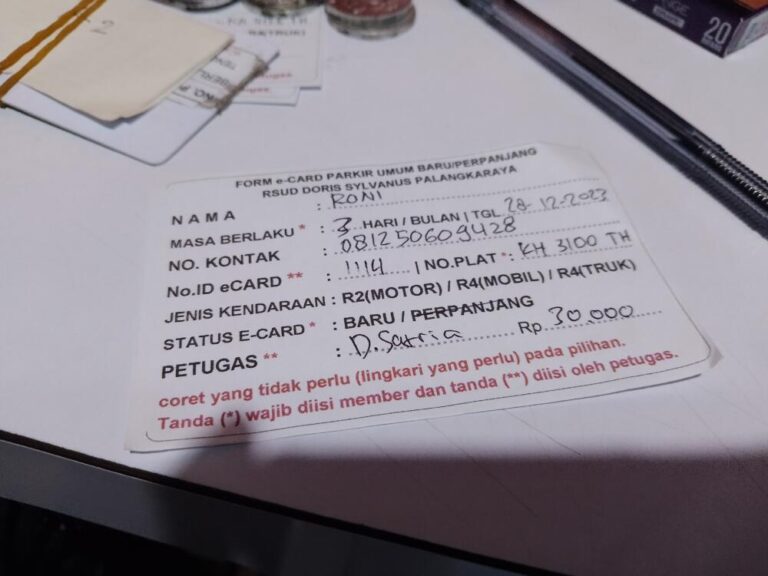 SATRUK)
20
FORM e-CARD PARKIR UMUM BARU/PERPANJANG
RSUD DORIS SYLVANUS PALANGKARAYA
NAMA : RONI
MASA BERLAKU * : 3 HARI / BULAN | TGL 28-12-2023
NO. KONTAK : 081250609428
No.ID eCARD ** : 1114 | NO.PLAT *: KH 3100 TH
JENIS KENDARAAN : R2(MOTOR) / R4(MOBIL) / R4(TRUK)
STATUS E-CARD * : BARU / PERPANJANG
PETUGAS ** : D.Satria Rp 30.000
coret yang tidak perlu (lingkari yang perlu) pada pilihan.
Tanda (*) wajib diisi member dan tanda (**) diisi oleh petugas.